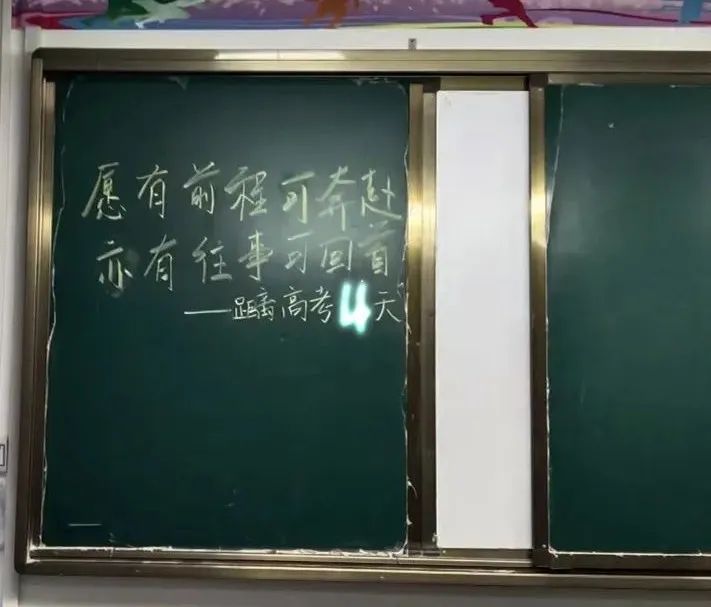 愿有前程可奔赴
亦有往事可回首
——距离高考4天